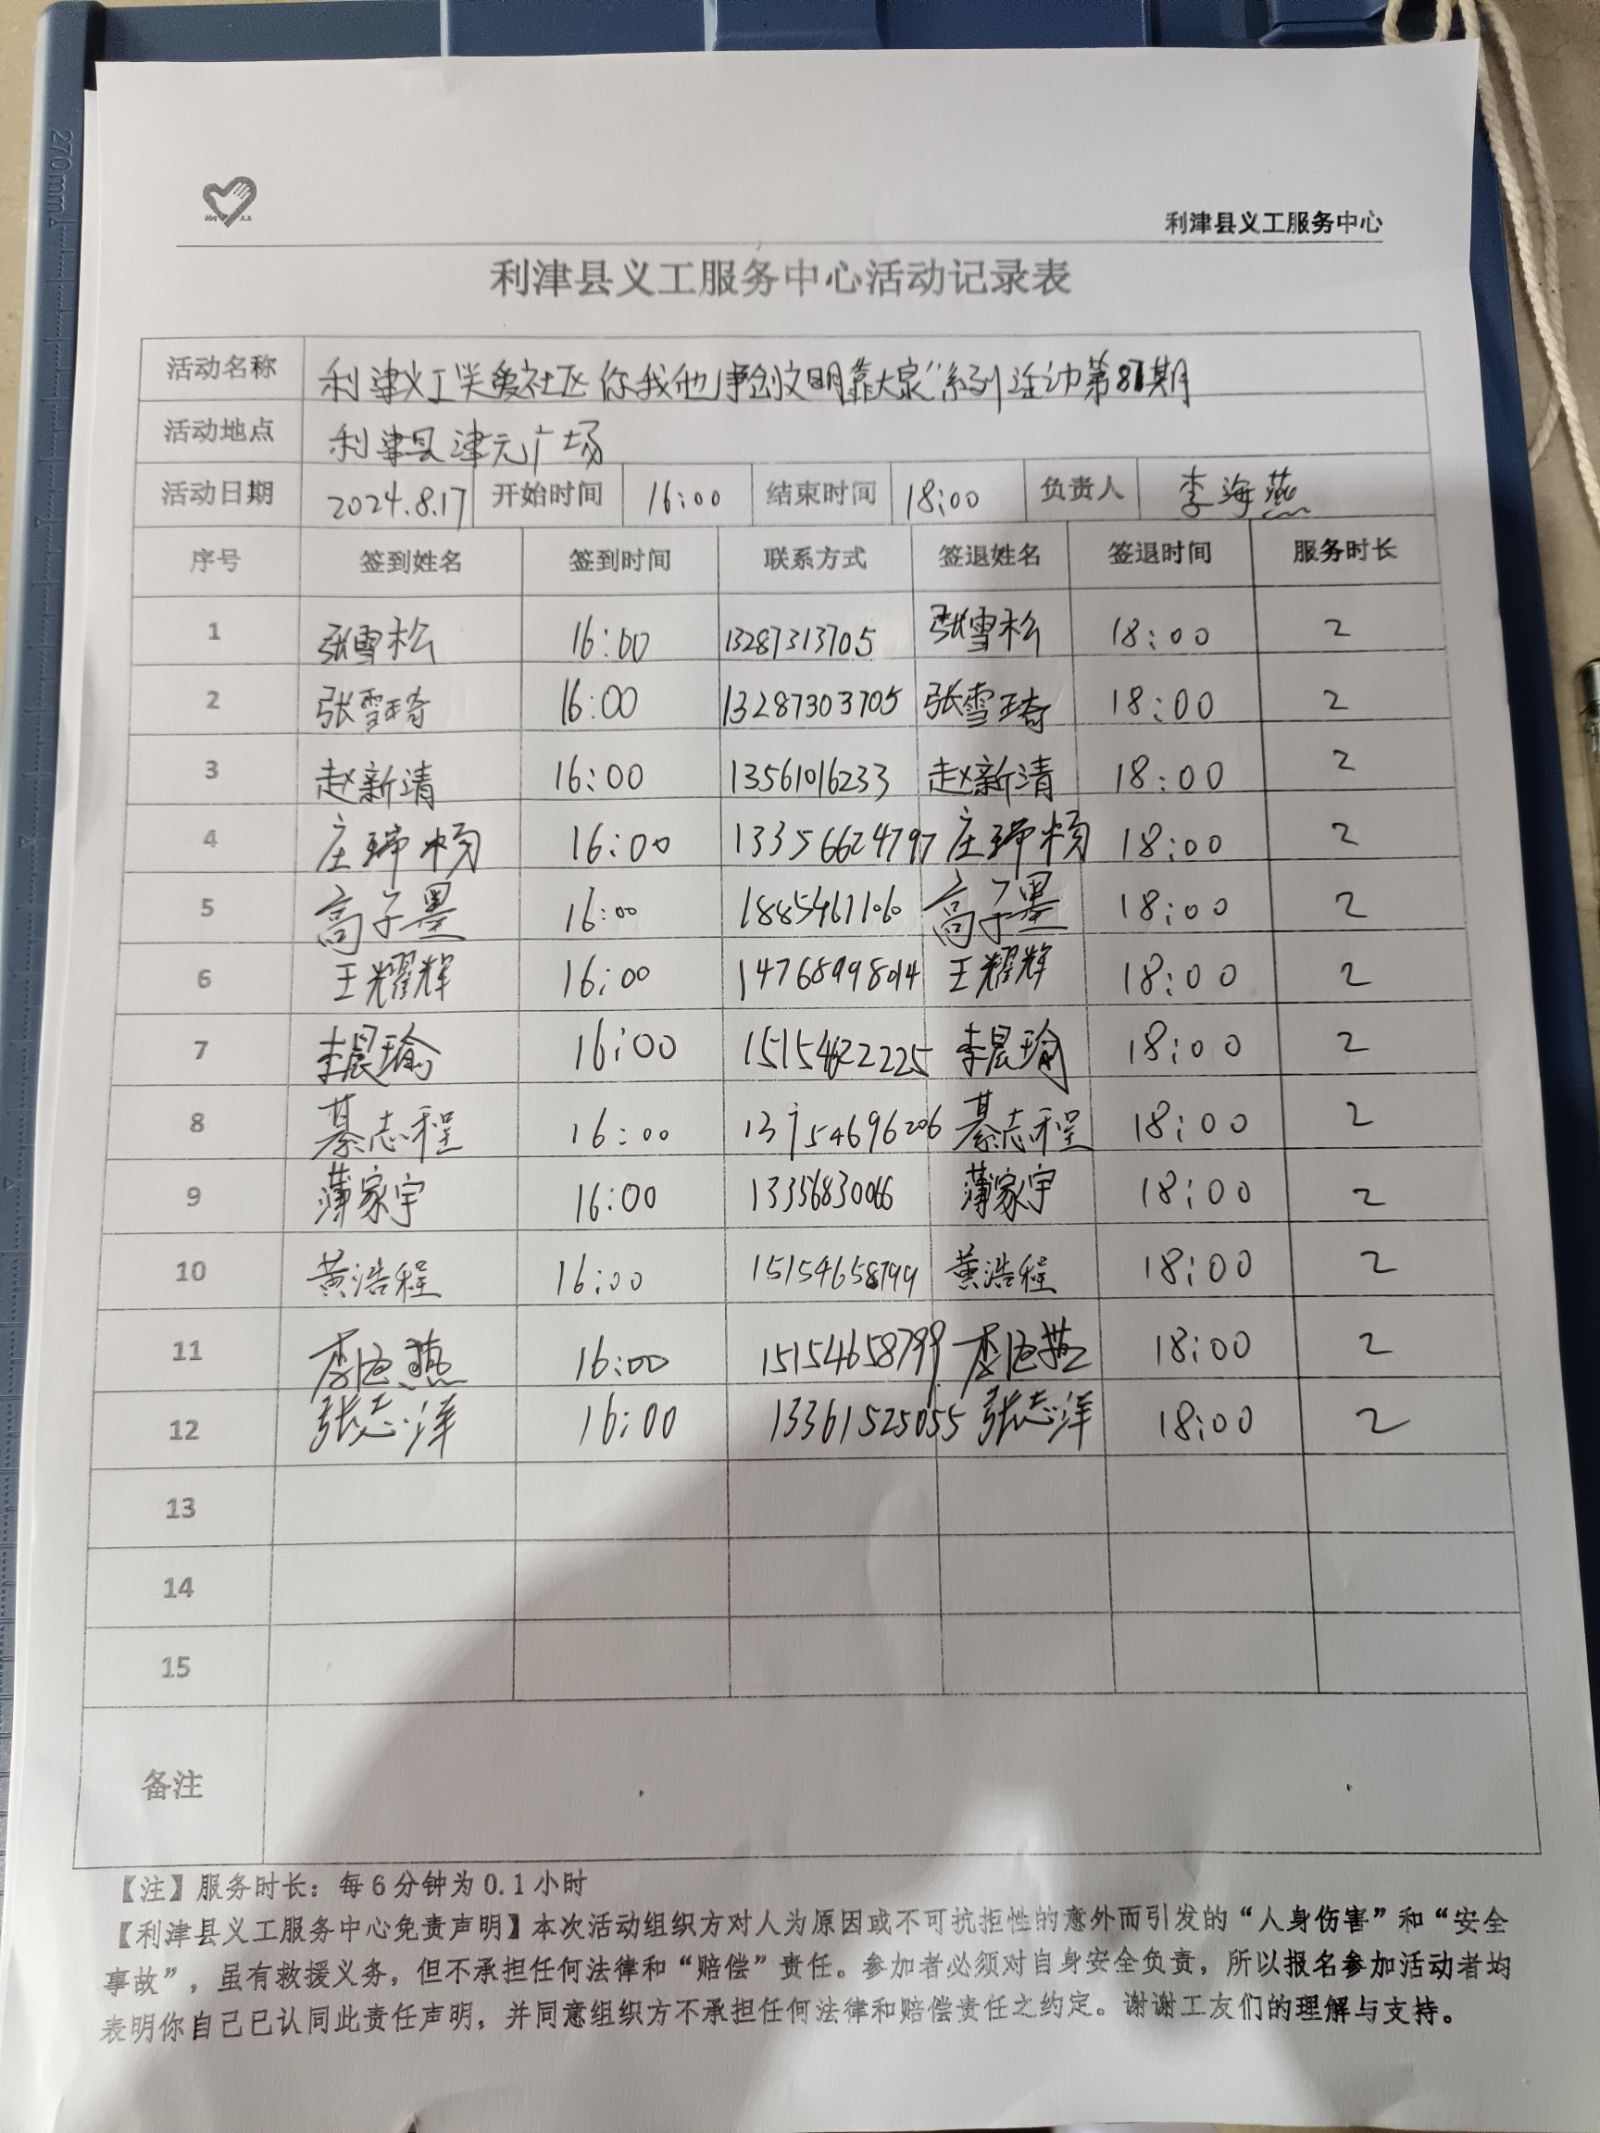 270mm
利津县义工服务中心
利津县义工服务中心活动记录表
活动名称 利津义工关爱社区你我他 争创文明靠大家"系列活动第81期
活动地点 利津县津元广场
活动日期 2024.8.17 开始时间 16:00 结束时间 18:00 负责人 李海燕
序号 签到姓名 签到时间 联系方式 签退姓名 签退时间 服务时长
1 张雪松 16:00 13287313705 张雪松 18:00 2
2 张雪琦 16:00 13287303705 张雪琦 18:00 2
3 赵新清 16:00 13561016233 赵新清 18:00 2
4 庄瑞杨 16:00 13356624797 庄瑞杨 18:00 2
5 高子墨 16:00 18854671060 高子墨 18:00 2
6 王耀辉 16:00 14768998014 王耀辉 18:00 2
7 李晨瑜 16:00 李晨瑜 18:00 2
8 綦志程 16:00 綦志程 18:00 2
9 薄家宇 16:00 13356830066 薄家宇 18:00 2
10 黄浩程 16:00 15154658799 黄浩程 18:00 2
11 李海燕 16:00 15154658799 李海燕 18:00 2
12 张志洋 16:00 13361525055 张志洋 18:00 2
13
14
15
备注
【注】服务时长：每6分钟为0.1小时
【利津县义工服务中心免责声明】本次活动组织方对人为原因或不可抗拒性的意外而引发的“人身伤害”和“安全
事故”，虽有救援义务，但不承担任何法律和“赔偿”责任。参加者必须对自身安全负责，所以报名参加活动者均
表明你自己已认同此责任声明，并同意组织方不承担任何法律和赔偿责任之约定。谢谢工友们的理解与支持。